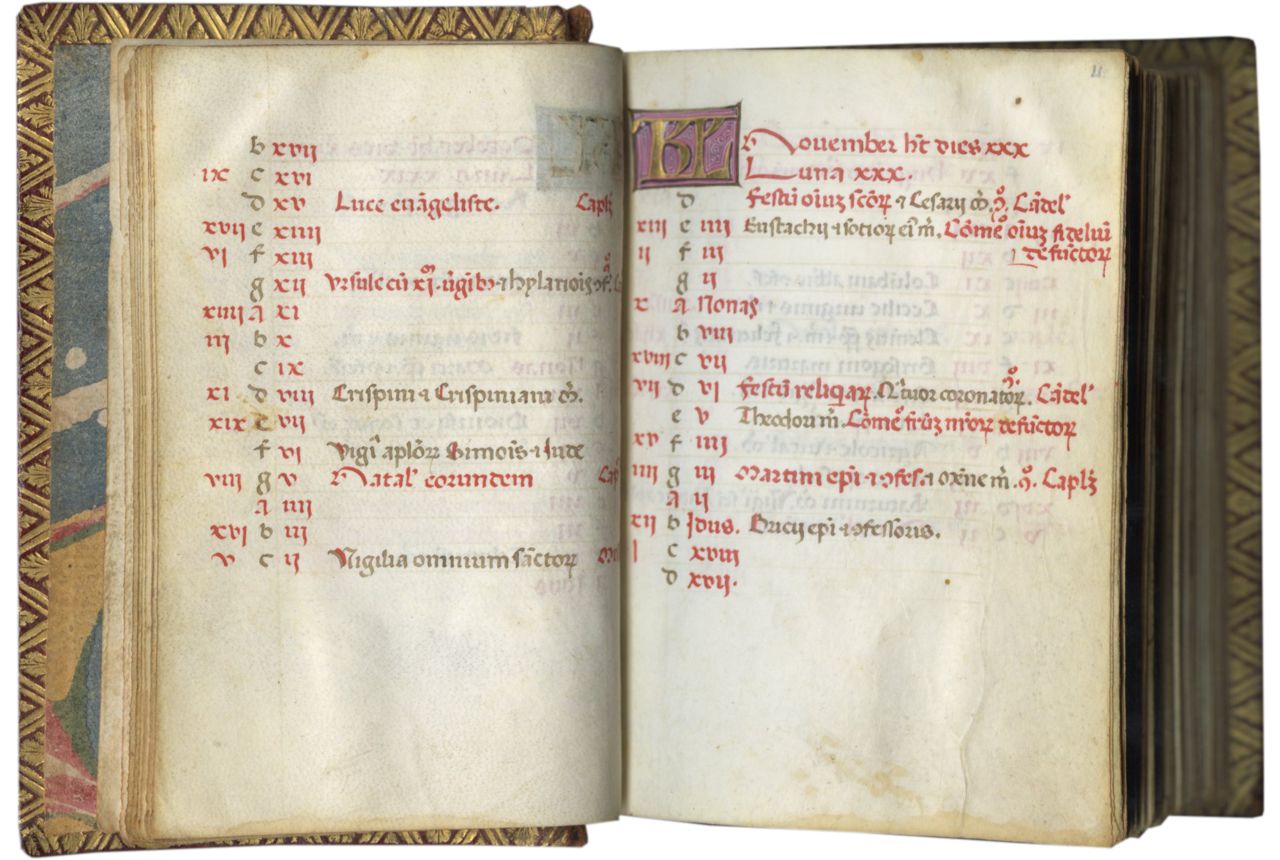 b xvij
ix c xvi
d xv Luce euãgeliste. Caplȝ
xvij e xiiij
vi f xiij
g xij Vrsule cũ xj. ꝟgibȝ ⁊ hylarioĩs
xiiij a xi
iij b x
c ix
xi d viij Crispini ⁊ Crispiniani m̃.
xix e vij
f vi Vigĩ aplõꝝ Simoĩs ⁊ Iude
viij g v Natal' eorundem Ca
a iiij
xvi b iij
v c ij Vigilia omnium sãctoꝝ
11
KL November hȝ dies xxx
Luna xxx.
d Festũ oĩuȝ scõꝝ ⁊ Cesarij m̃. Cãdel'
xiij e iiij Eustachij ⁊ socioꝝ eiꝰ m̃. Cõmeº oĩuȝ fideliũ
defũctoꝝ
ij f iij
g ij
x a Nonas
b viij
xviij c vij
vij d vi Festũ reliq̃iaꝝ. Q̃tuor coronatoꝝ. Cãdel'
e v Theodori m̃. Cõmeº fr̃uȝ nr̃oꝝ defũctoꝝ
xv f iiij
iiij g iij Martini epĩ ⁊ ꝯfes. ⁊ m̃. Caplȝ
a ij
xij b Idus. Bricij epĩ ⁊ ꝯfessoris.
i c xviij
d xvij.